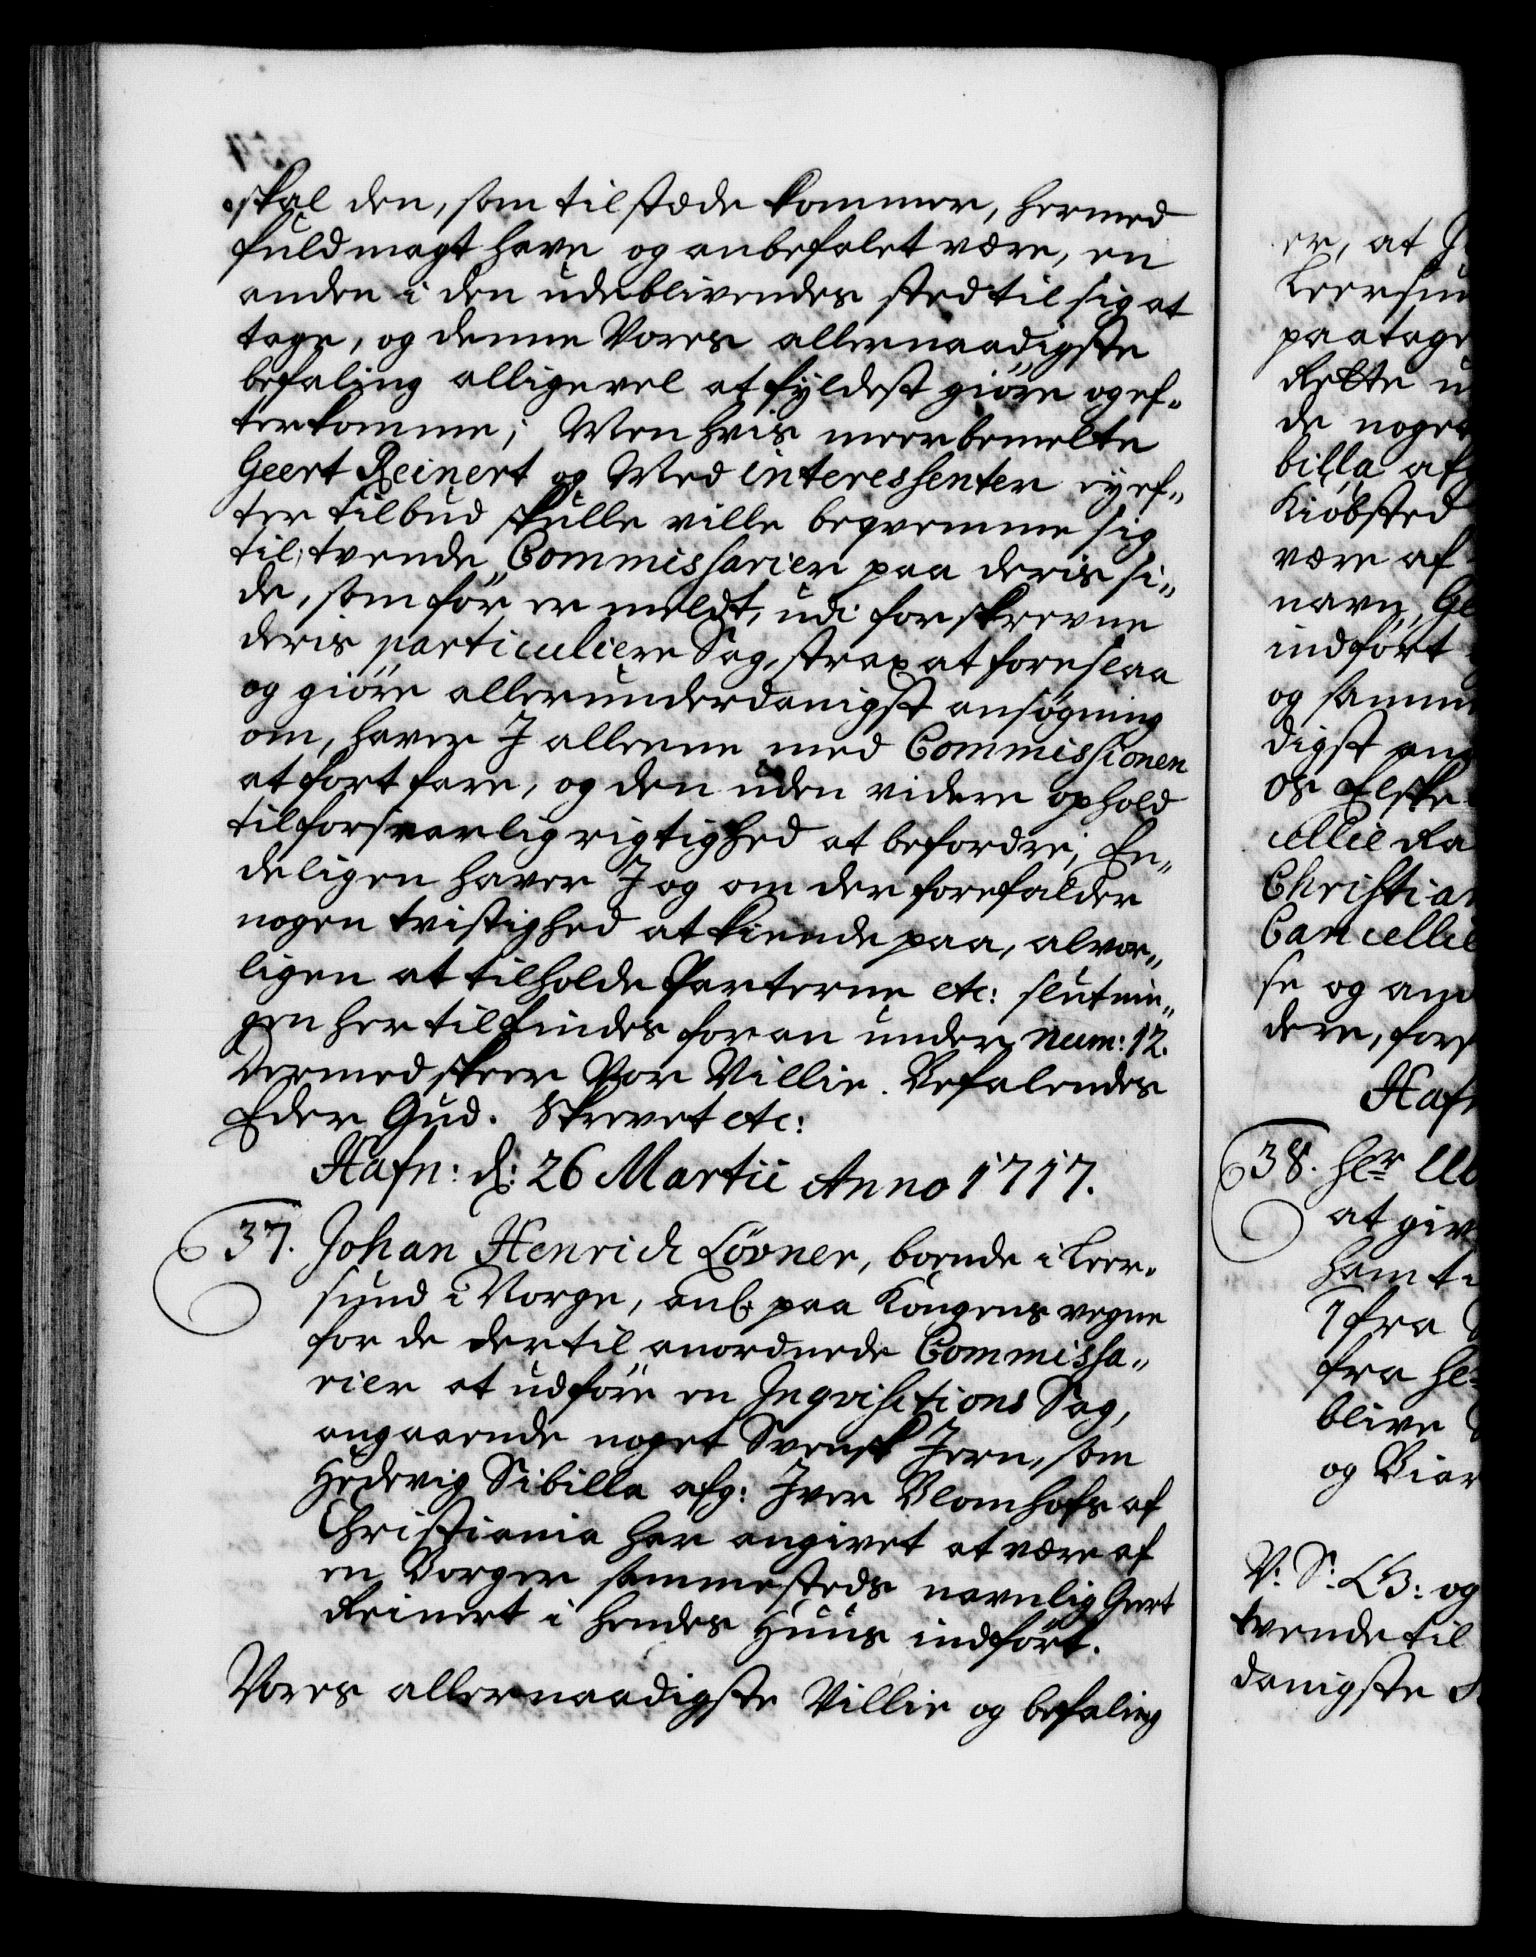 skal den, som tilstæde kommer, hermed
fuldmagt have og anbefalet være, en
anden i den udeblivendes sted til sig at
tage, og denne Vores allernaadigste
befaling alligevel at fyldest giøre og ef-
terkomme; Men hvis meerbemelte
Geert Reinert og Med interessenter ey ef-
ter tilbud skulle ville beqvemme sig
til, tvende Commissarier paa deris si-
de, som før er meldt, udi forskrevne
deris particuliere Sag, strax at foreslaa
og giøre allerunderdanigst ansøgning
om, haver I alleene med Commissionen
at fortfare, og den uden videre ophold
til forsvarlig rigtighed at befordre; En-
deligen haver I og om der forefalder
nogen tvistighed at kiende paa, alvor-
ligen at tilholde Parterne etc: slutnin-
gen hertil findes foran under Num: 12.
Dermed skeer Vor Villie. Befalendes
Eder Gud. Skrevet etc:
Hafn: d: 26 Martii Anno 1717.
37. Johan Henrich Lövner, boende i Leer-
sund i Norge, anb. paa Kongens vegne
for de dertil anordnede Commissa-
rier at udføre en Inqvisitions Sag,
angaaende noget Svensk Jern, som
Hedevig Sibilla afg: Iver Blomhofs af
Christiania har angivet at være af
en Borger sammesteds navnlig Geert
Reinert i hendes Huus indført.
Vores allernaadigste Villie og befaling
er, at
paatage
Rette
de noget
billa af
Kiöbsted
være af
navn, Ge
indført
og samme
digst an
os Elske
cellie Ra
Christian
Cancellie
se og and
dere, for
Hafn
38. Hr
at giv
ham ti
7 fra
fra
blive
og
V: S: G: og
tvende til
danigste